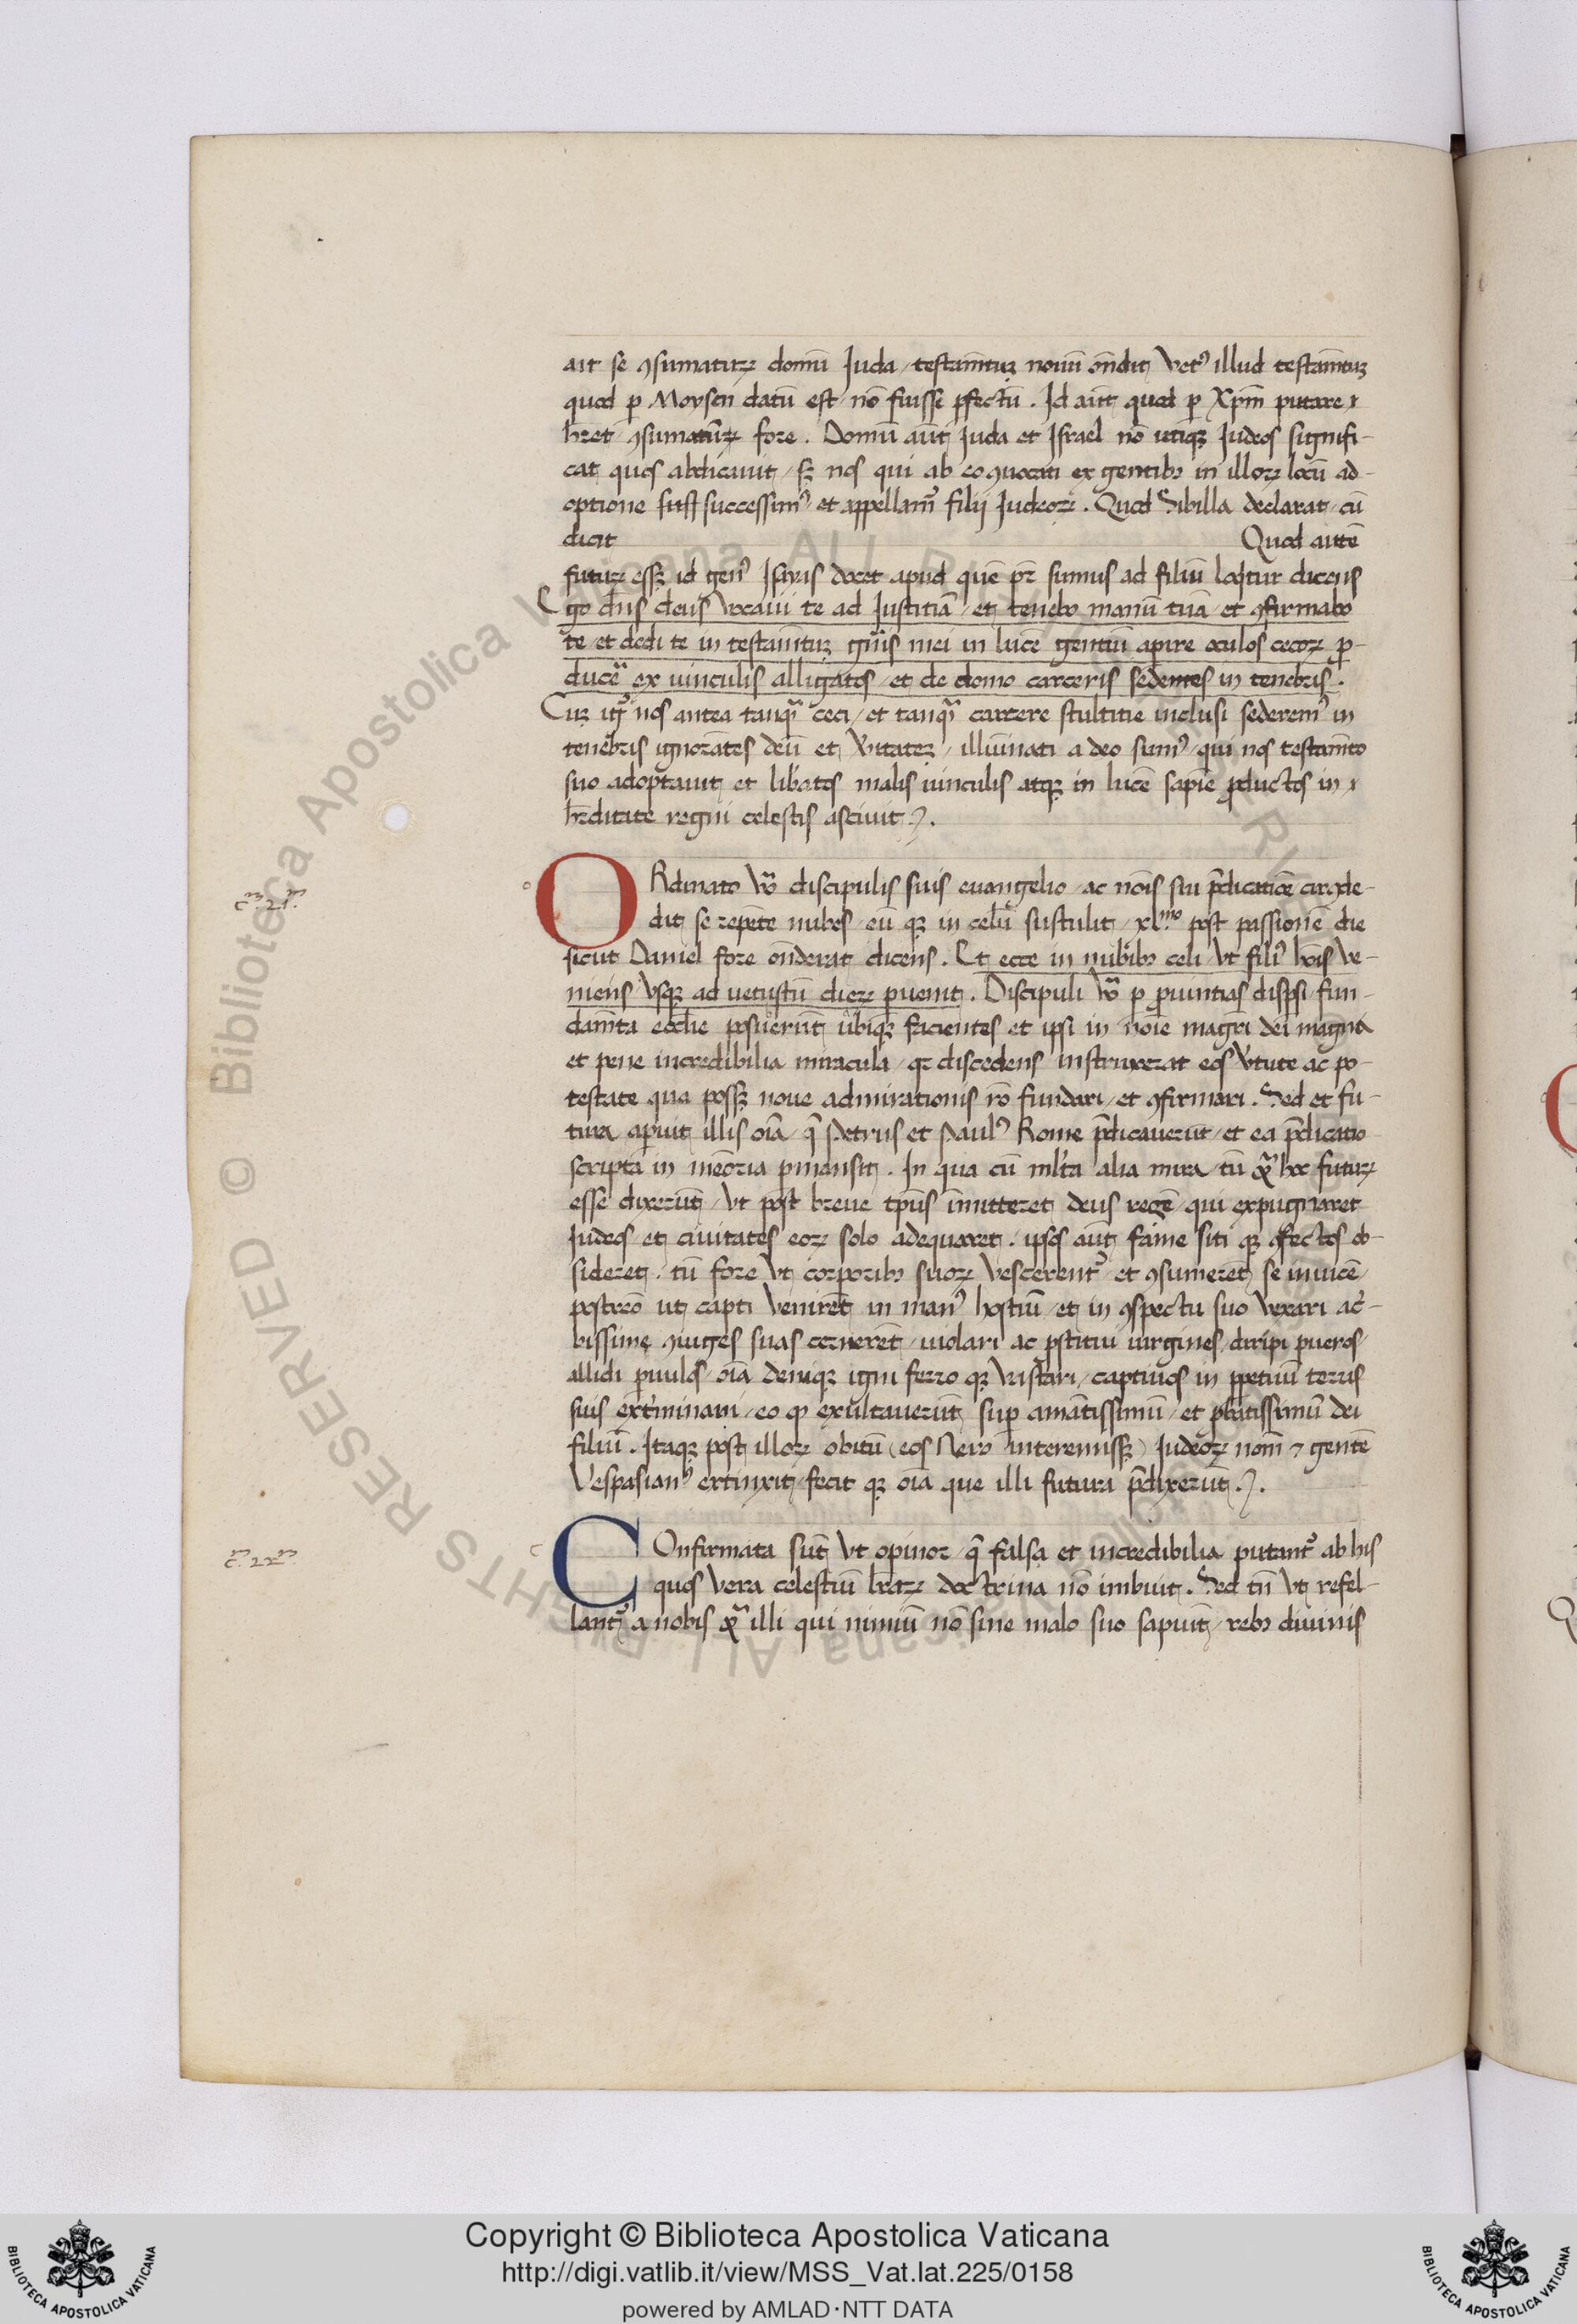 ait se ꝯsumaturꝝ domū Juda / testam̄tuꝫ nouū on̄dit vetꝰ illud testam̄tuꝫ
quod ꝑ Moysen datū est / nō fuisse ꝑfectū . Id aūt quod ꝑ Xp̄m putare
hr̄et / ꝯsumatūꝝ fore . Domū aūt Juda et Israel nō utiqꝫ Judeos signifi-
cat quos abdicauit / sꝫ nos qui ab eo ꝯuocati ex gentibꝫ in illoꝝ locū ad-
optione successimꝰ et appellamꝰ filij Judeoꝝ . Quod Sibilla declarat / cū
dicit Quod autē
futuꝝ essꝫ id genꝰ docet apud quē pr̄ sumus ad filiū loq̄tur dicens
Ego dn̄s deus vocaui te ad Justitiā / et tenebo manū tuā / et ꝯfirmabo
te / et dedi te in testam̄tuꝫ gn̄is mei in lucē gentiū apire oculos cecoꝝ ꝓ-
ducē ex uinculis alligatos / et de domo carceris sedentes in tenebris .
Cuꝫ igr̄ nos antea tanqͣ ceci / et tanqͣ carcere stultitie inclusi sederemꝰ in
tenebris ignorātes deū et v̄itateꝫ / illūinati a deo sumꝰ / qui nos testam̄to
suo adoptauit et lib̄atos malis uinculis atqꝫ in lucē sapiē ꝓductos in
hr̄editate regni celestis asciuit .
ORdinato v̄o discipulis suis euangelio / ac nōis sui p̄dicatiōe circūde-
dit se repēte nubes / eū qꝫ in celū sustulit / xl.mo post passionē die
sicut Daniel fore on̄derat dicens . Et ecce in nubibꝫ celi / vt filiꝰ hōis ve-
niens vsqꝫ ad uetustū dieꝝ ꝑuenit . Discipuli v̄o ꝑ ꝓuintias disꝑsi / fun-
dam̄ta eccl̄ie posuerūt ubiqꝫ facientes et ipsi in nōie magr̄i dei magna
et pene incredibilia miracula / qꝛ discedens instruxerat eos v̄tute ac po-
testate qua possꝫ noue admirationis rō fundari / et ꝯfirmari . Sed et fu-
tura aꝑuit illis oīa / q̄ Petrus et Paulꝰ Rome p̄dicauerūt / et ea p̄dicatio
scripta in mēoria ꝑmansit . In qua cū ml̄ta alia mira / tū hoc futuꝝ
esse dixerūt / vt post breue tp̄us īmitteret deus regē / qui expugnaret
Judeos et ciuitates eoꝝ solo adequaret . ipsos aūt fame siti qꝫ ꝯfectos ob-
sideret . tū fore vt corporibꝫ suoꝝ vescerentꝰ et ꝯsumerēt se inuicē /
postreō ut capti venirēt in manꝰ hostiū / et in ꝯspectu suo vexari ac̄-
bissime ꝯiuges suas cernerēt / uiolari ac ꝓstitui uirgines / diripi pueros /
allidi ꝑuulos / oīa deniqꝫ igni ferro qꝫ vastari / captiuos in ꝑpetuū terris
suis exterminari / eo ꝙ exultauerūt suꝑ amātissimū / et ꝓbatissimū dei
filiū . Itaqꝫ post illoꝝ obitū (eos Nero interemissꝫ) Judeoꝝ nom̄ ⁊ gentē
Vespasianꝰ extinxit / fecit qꝫ oīa que illi futura p̄dixerūt .
COnfirmata sūt vt opinor / q̄ falsa et incredibilia putantꝰ ab his
quos vera celestiū lr̄aꝝ doctrina nō imbuit . Sed tn̄ vt refel-
lantꝰ a nobis illi qui nimiū nō sine malo suo sapiūt / rebꝫ diuinis
© Biblioteca Apostolica Vaticana ALL RIGHTS RESERVED
Copyright © Biblioteca Apostolica Vaticana
http://digi.vatlib.it/view/MSS_Vat.lat.225/0158
powered by AMLAD·NTT DATA
BIBLIOTECA APOSTOLICA VATICANA
BIBLIOTECA APOSTOLICA VATICANA